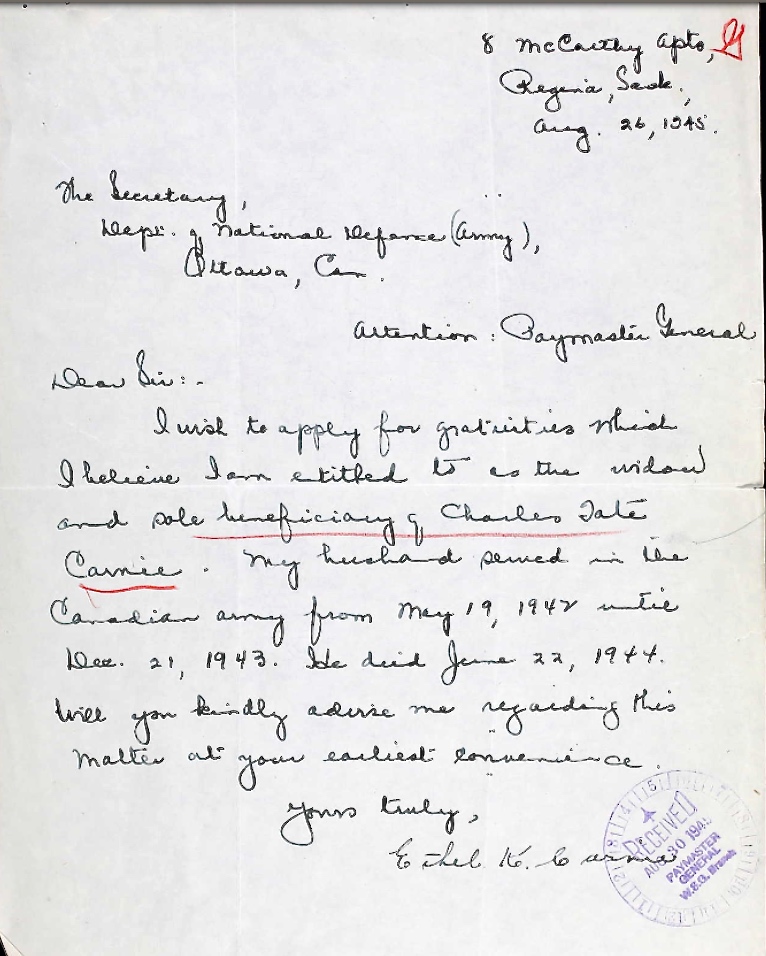 8 McCarthy Apts,
Regina, Sask.,
Aug. 26, 1945.
The Secretary,
Dept. of National Defence (Army),
Ottawa, Can.
Attention: Paymaster General
Dear Sir:-
I wish to apply for gratuities which
I believe I am entitled to as the widow
and sole beneficiary of Charles Tate
Carnie. My husband served in the
Canadian army from May 19, 1942 until
Dec. 21, 1943. He died June 22, 1944.
Will you kindly advise me regarding this
matter at your earliest convenience.
Yours truly,
Ethel K. Carnie
RECEIVED
AUG 30 1945
PAYMASTER
GENERAL
W.S.G. Branch